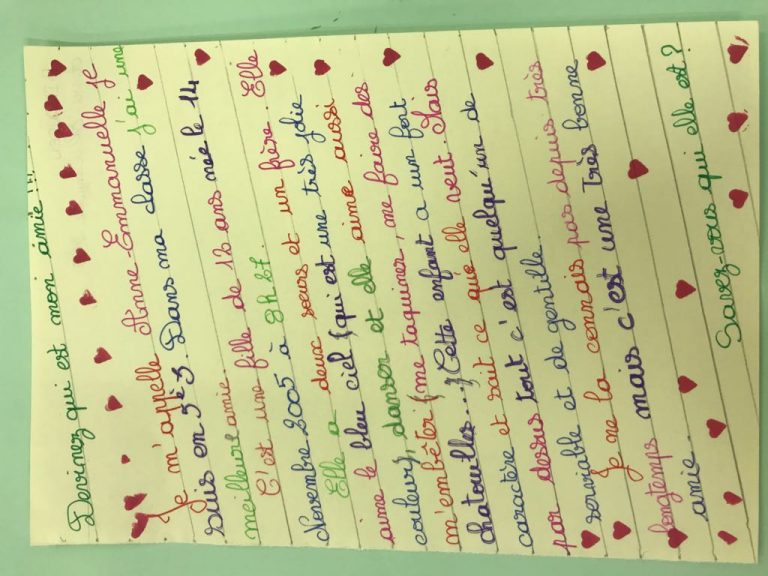 Devinez qui est mon amie !!!
Je m'appelle Anne-Emmanuelle je
suis en 5è3. Dans ma classe j'ai une
meilleure amie.
C'est une fille de 12 ans née le 14
Novembre 2005 à 8h27.
Elle a deux sœurs et un frère. Elle
aime le bleu ciel (qui est une très jolie
couleur), danser et elle aime aussi
m'embêter (me taquiner, me faire des
chatouilles...) Cette enfant a un fort
caractère et sait ce que elle veut. Mais
par dessus tout c'est quelqu'un de
serviable et de gentille.
Je ne la connais pas depuis très
longtemps mais c'est une très bonne
amie.
Savez-vous qui elle est ?